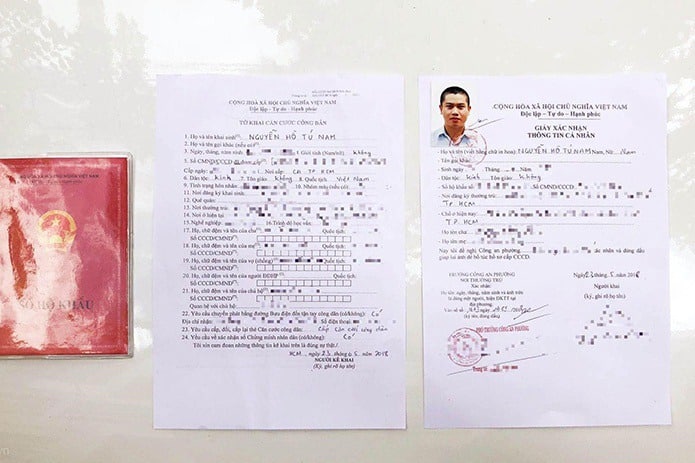 CỘNG HÒA XÃ HỘI CHỦ NGHĨA VIỆT NAM
SỔ HỘ KHẨU
CỘNG HÒA XÃ HỘI CHỦ NGHĨA VIỆT NAM
Độc lập - Tự do - Hạnh phúc
TỜ KHAI CĂN CƯỚC CÔNG DÂN
1. Họ và tên khai sinh: NGUYỄN HỒ TÚ NAM
2. Họ và tên gọi khác (nếu có):
3. Ngày, tháng, năm sinh: 4. Giới tính (Nam/nữ):
5. Số CMND/CCCD đã được cấp:
Cấp ngày: Nơi cấp: CA TP HCM
6. Dân tộc: Kinh 7. Tôn giáo: Không 8. Quốc tịch: Việt Nam
9. Tình trạng hôn nhân: 10. Nhóm máu (nếu có):
11. Nơi đăng ký khai sinh:
12. Quê quán:
13. Nơi thường trú:
14. Nơi ở hiện tại:
15. Nghề nghiệp: 16. Trình độ học vấn:
17. Họ, chữ đệm và tên của cha: Quốc tịch:
Số CCCD/CMND:
18. Họ, chữ đệm và tên của mẹ: Quốc tịch:
Số CCCD/CMND:
19. Họ, chữ đệm và tên của vợ (chồng): Quốc tịch:
Số CCCD/CMND:
20. Họ, chữ đệm và tên của người ĐDHP Quốc tịch:
Số CCCD/CMND:
21. Họ, chữ đệm và tên của chủ hộ
Số CCCD/CMND:
Quan hệ với chủ hộ:
22. Yêu cầu chuyển phát bằng đường Bưu điện đến tận tay công dân (có/không): Có
Địa chỉ nhận: Số điện thoại:
23. Yêu cầu cấp, đổi, cấp lại thẻ Căn cước công dân: Cấp Căn cước công dân
24. Yêu cầu về xác nhận số Chứng minh nhân dân (có/không): Có
Tôi xin cam đoan những thông tin kê khai trên là đúng sự thật./.
HCM, ngày 23 tháng 05 năm 2018
NGƯỜI KÊ KHAI
(Ký, ghi rõ họ tên)
CỘNG HÒA XÃ HỘI CHỦ NGHĨA VIỆT NAM
Độc lập - Tự do - Hạnh phúc
GIẤY XÁC NHẬN
THÔNG TIN CÁ NHÂN
Họ và tên (viết bằng chữ in hoa): NGUYỄN HỒ TÚ NAM Nam, Nữ: Nam
Tên gọi khác:
Sinh ngày Tháng Năm
Dân tộc: Kinh Tôn giáo: Không
Số hộ khẩu: Số CMND/CCCD:
Nơi đăng ký thường trú:
TP. HCM
Chỗ ở hiện nay:
TP. HCM
Họ tên cha:
Họ tên mẹ:
Nay tôi đề nghị Công an phường xác nhận và đóng dấu
giáp lai ảnh để bổ túc hồ sơ cấp CCCD.
TRƯỞNG CÔNG AN PHƯỜNG
NƠI THƯỜNG TRÚ
Xác nhận
Họ tên, ngày, tháng, năm sinh và ảnh trên
là đúng một người, hiện ĐKTT tại
địa phương.
(ký tên, đóng dấu)
Ngày 23 tháng 5 năm 2018
Người khai
(ký, ghi rõ họ tên)
PHÓ TRƯỞNG CÔNG AN PHƯỜNG